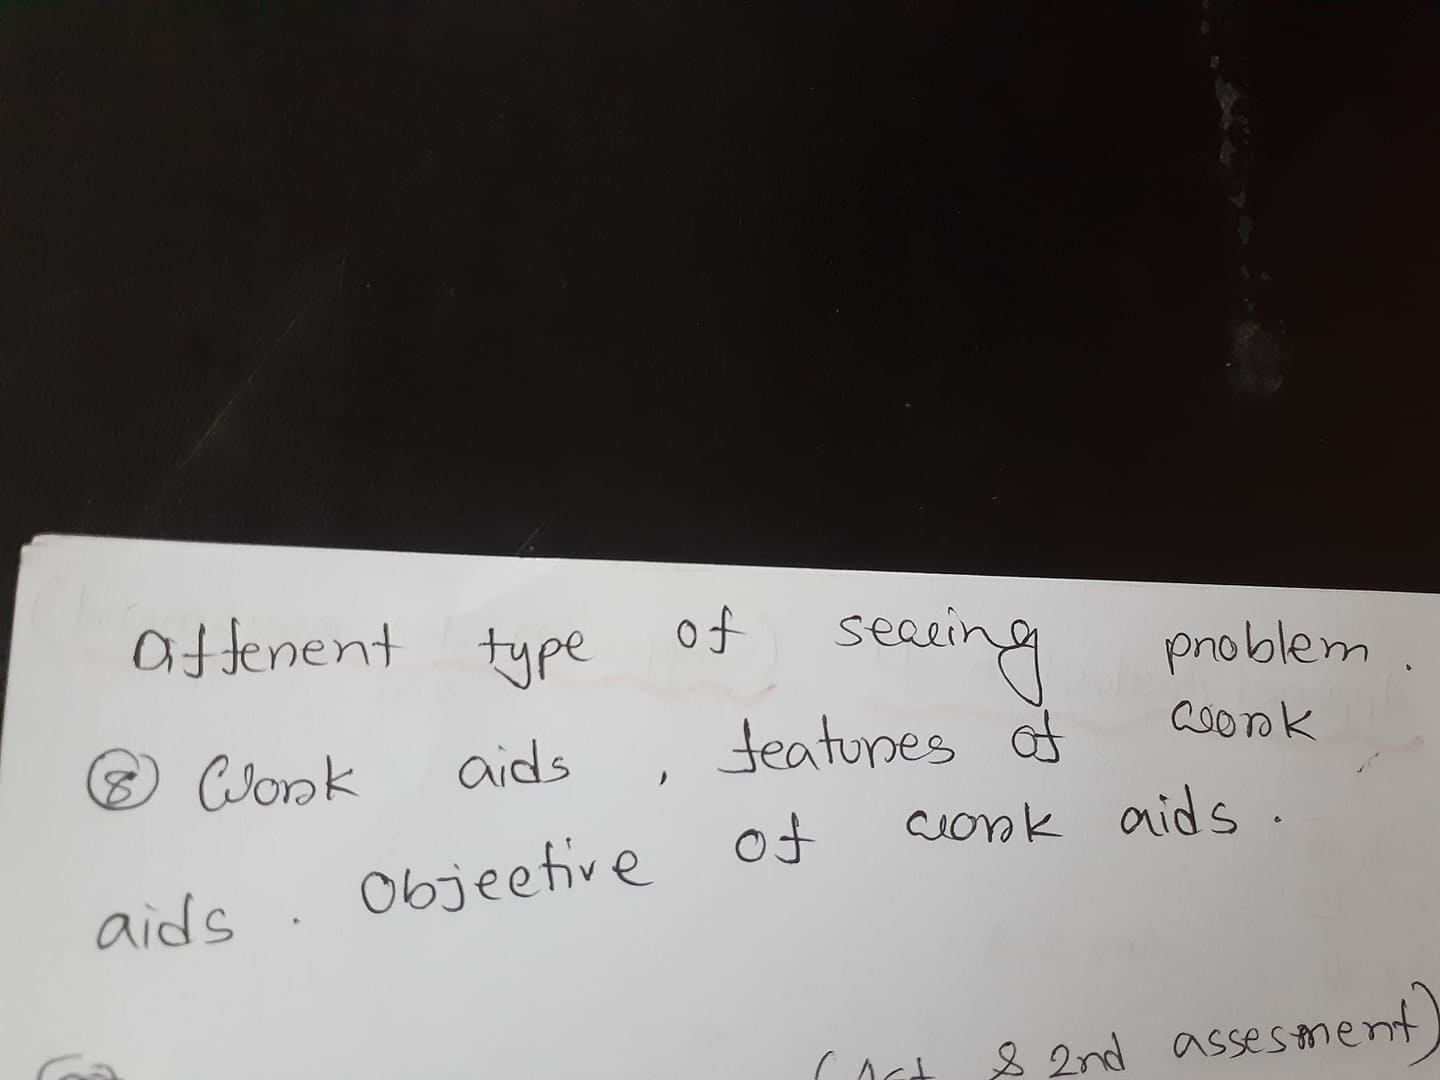 different type of sewing problem.
⑧ Work aids, features of work
aids. Objective of work aids.
(Act & 2nd assesment)